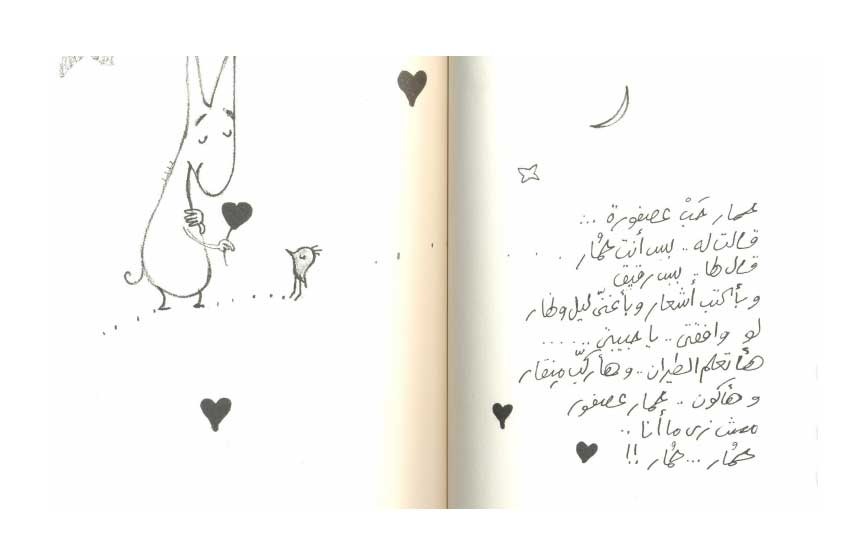 حمار حَبْ عصفورة ...
قالت له .. بس أنت حمُار
قال لها .. بس رقيق
وبأكتب أشعار وبأغنّى ليل ونهار
لو وافقتى .. يا حبيبتى ......
هأتعلم الطيران .. وهأركّب مِنقار
وهأكون .. حمار عصفور
مش زى ما أنا ..
حمُار ... حمُار !!